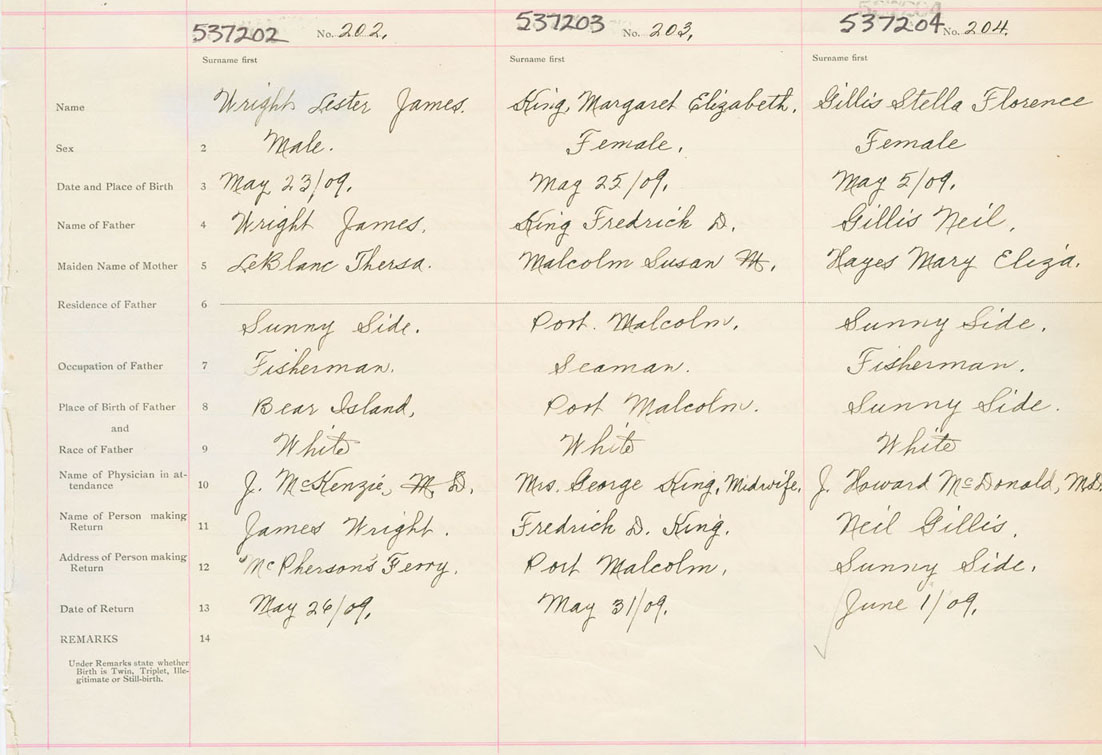 537202 No. 202. 537203 No. 203. 537204 No. 204.
Surname first Surname first Surname first
Name Wright Lester James. King, Margaret Elizabeth. Gillis Stella Florence
Sex 2 Male. Female. Female
Date and Place of Birth 3 May 23/09. May 25/09. May 5/09.
Name of Father 4 Wright James. King Fredrick D. Gillis Neil.
Maiden Name of Mother 5 LeBlanc Thersa. Malcolm Susan M. Hayes Mary Eliza.
Residence of Father 6
Sunny Side. Port. Malcolm. Sunny Side.
Occupation of Father 7 Fisherman. Seaman. Fisherman.
Place of Birth of Father 8 Bear Island, Port Malcolm. Sunny Side.
and
Race of Father 9 White White White
Name of Physician in at-
tendance 10 J. McKenzie, M.D. Mrs. George King, Midwife. J. Howard McDonald, M.D.
Name of Person making
Return 11 James Wright. Fredrick D. King. Neil Gillis.
Address of Person making
Return 12 McPherson's Ferry. Port Malcolm. Sunny Side.
Date of Return 13 May 26/09. May 31/09. June 1/09.
REMARKS 14
Under Remarks state whether
Birth is Twin, Triplet, Ille-
gitimate or Still-birth.